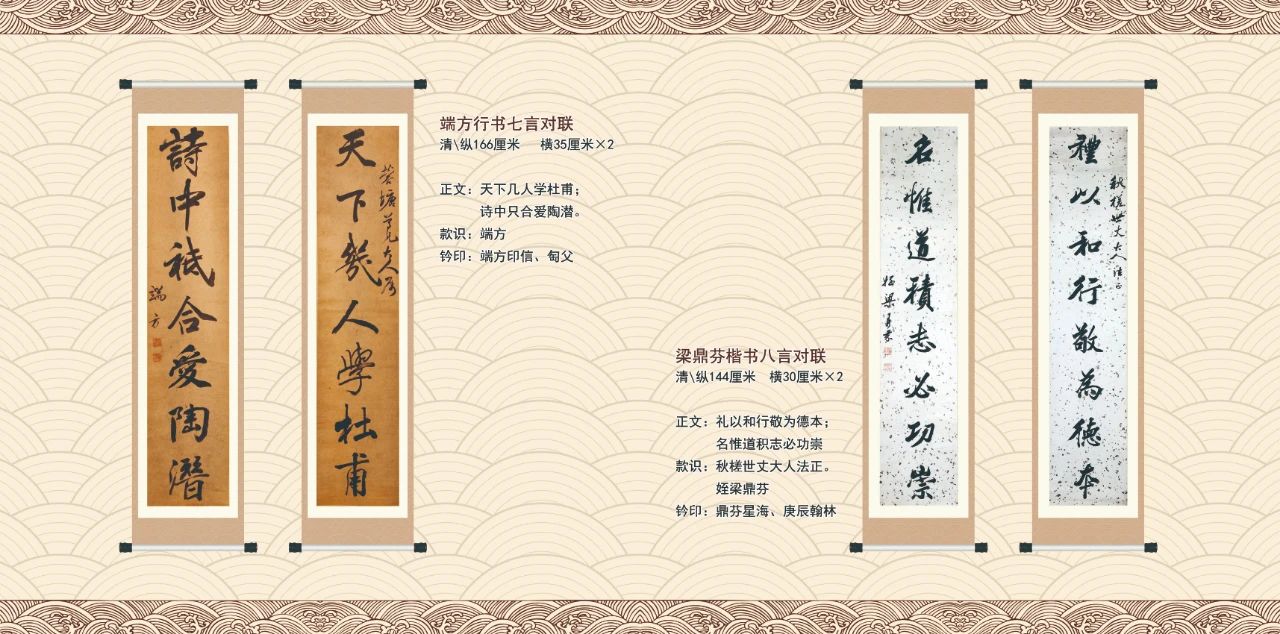 天下幾人學杜甫
蓉塘尊兄大人屬
詩中祗合愛陶潛
端方
端方行书七言对联
清\纵166厘米 横35厘米×2
正文：天下几人学杜甫；
诗中只合爱陶潜。
款识：端方
钤印：端方印信、匋父
梁鼎芬楷书八言对联
清\纵144厘米 横30厘米×2
正文：礼以和行敬为德本；
名惟道积志必功崇
款识：秋槎世丈大人法正。
姪梁鼎芬
钤印：鼎芬星海、庚辰翰林
禮以和行敬為德本
秋槎世丈大人法正
名惟道積志必功崇
姪梁鼎芬